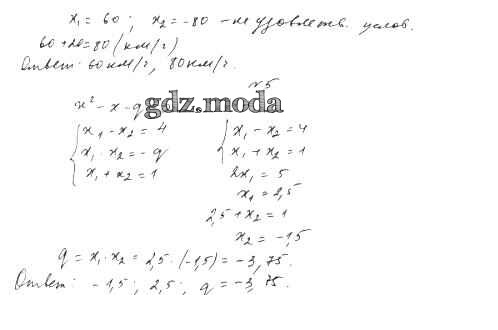 x₁ = 60; x₂ = -80 - не удовлетв. услов.
60 + 20 = 80 (км/ч)
Ответ: 60 км/ч, 80 км/ч.
№5
x² - x - q
gdz.moda
x₁ - x₂ = 4
x₁ · x₂ = -q
x₁ + x₂ = 1
x₁ - x₂ = 4
x₁ + x₂ = 1
2x₁ = 5
x₁ = 2,5
2,5 + x₂ = 1
x₂ = -1,5
q = x₁ · x₂ = 2,5 · (-1,5) = -3,75.
Ответ: -1,5; 2,5; q = -3,75.